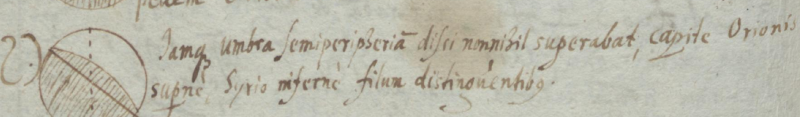 2.) Jamq umbra semiperipheriã disci nonnihil superabat, capite Orionis
supernè, Syrio infernè filum distinguentibq.